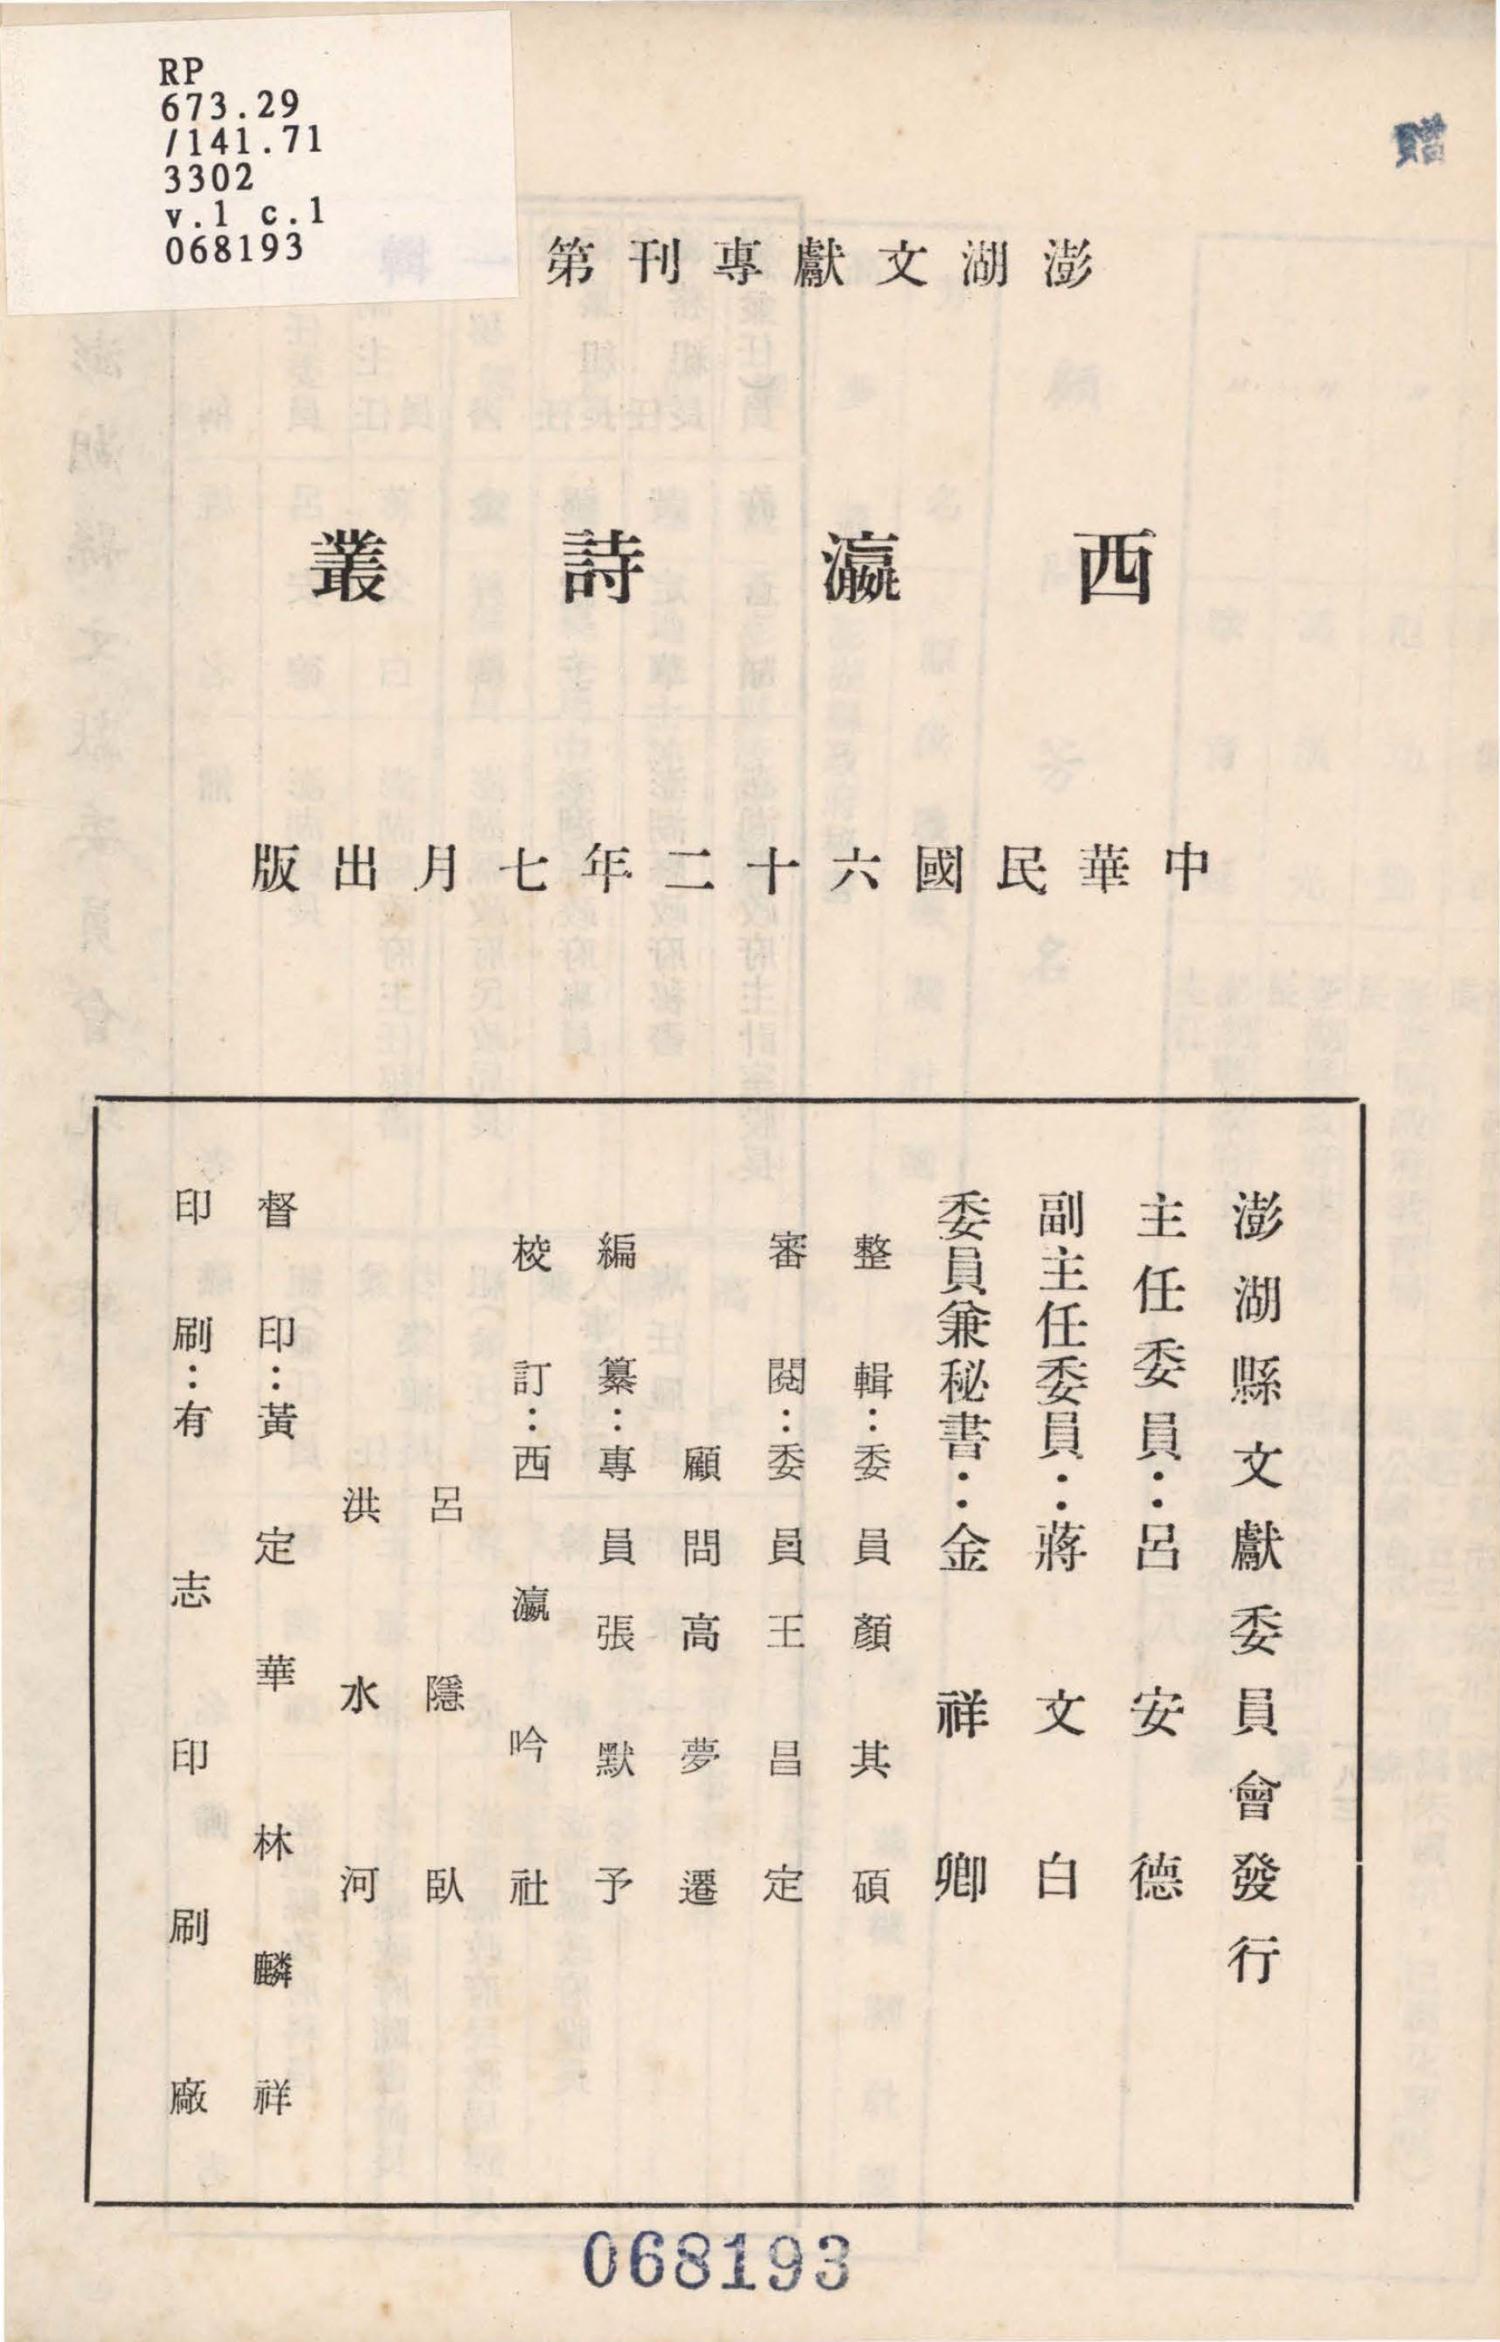 RP
673.29
/141.71
3302
v.1 c.1
068193
贈
澎湖文獻專刊第
西瀛詩叢
中華民國六十二年七月出版
澎湖縣文獻委員會發行
主任委員：呂安德
副主任委員：蔣文白
委員兼秘書：金祥卿
整輯：委員顏其碩
審閱：委員王昌定
顧問高夢遷
編纂：專員張默予
校訂：西瀛吟社
呂隱臥
洪水河
督印：黃定華 林麟祥
印刷：有志印刷廠
068193